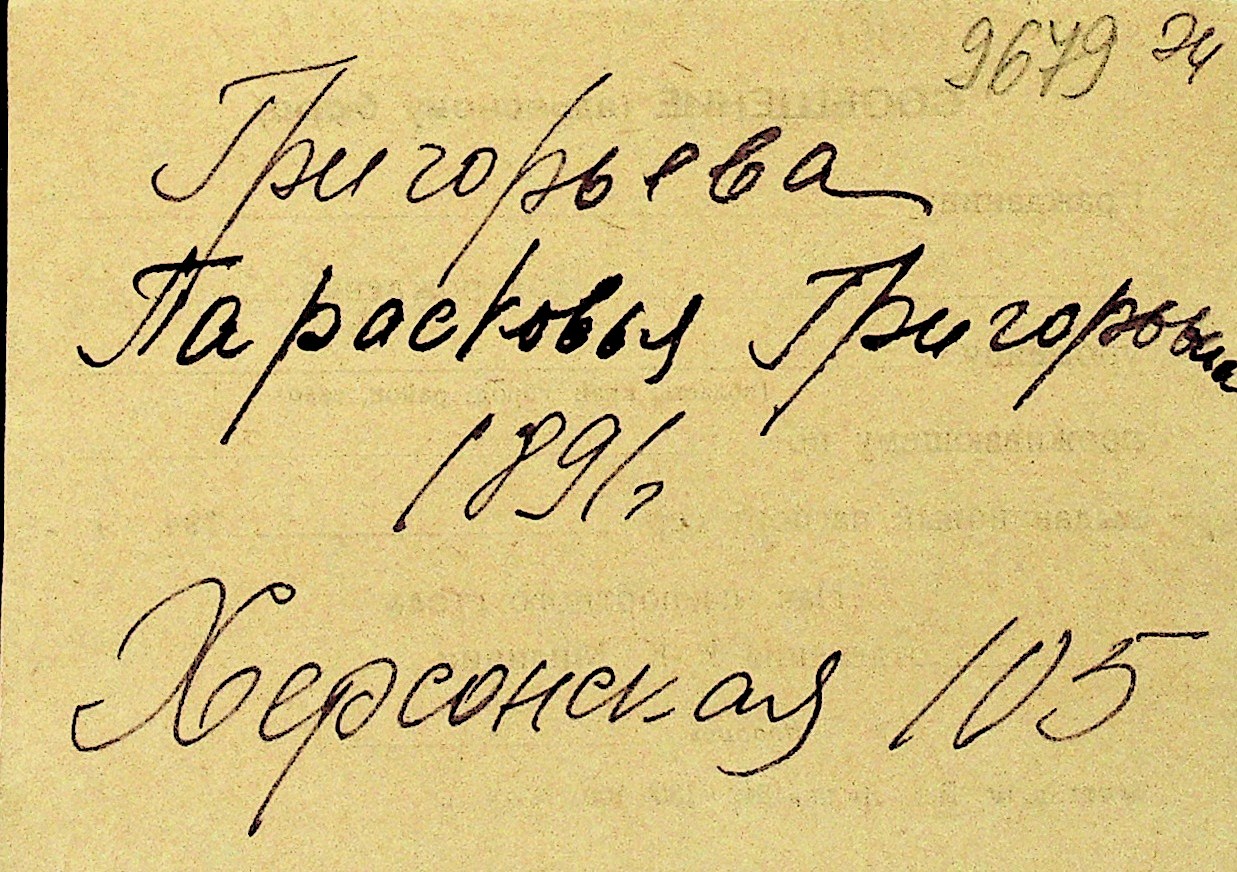 9679
Григорьева
Парасковья Григорьевна
1891г.
Херсонская 105